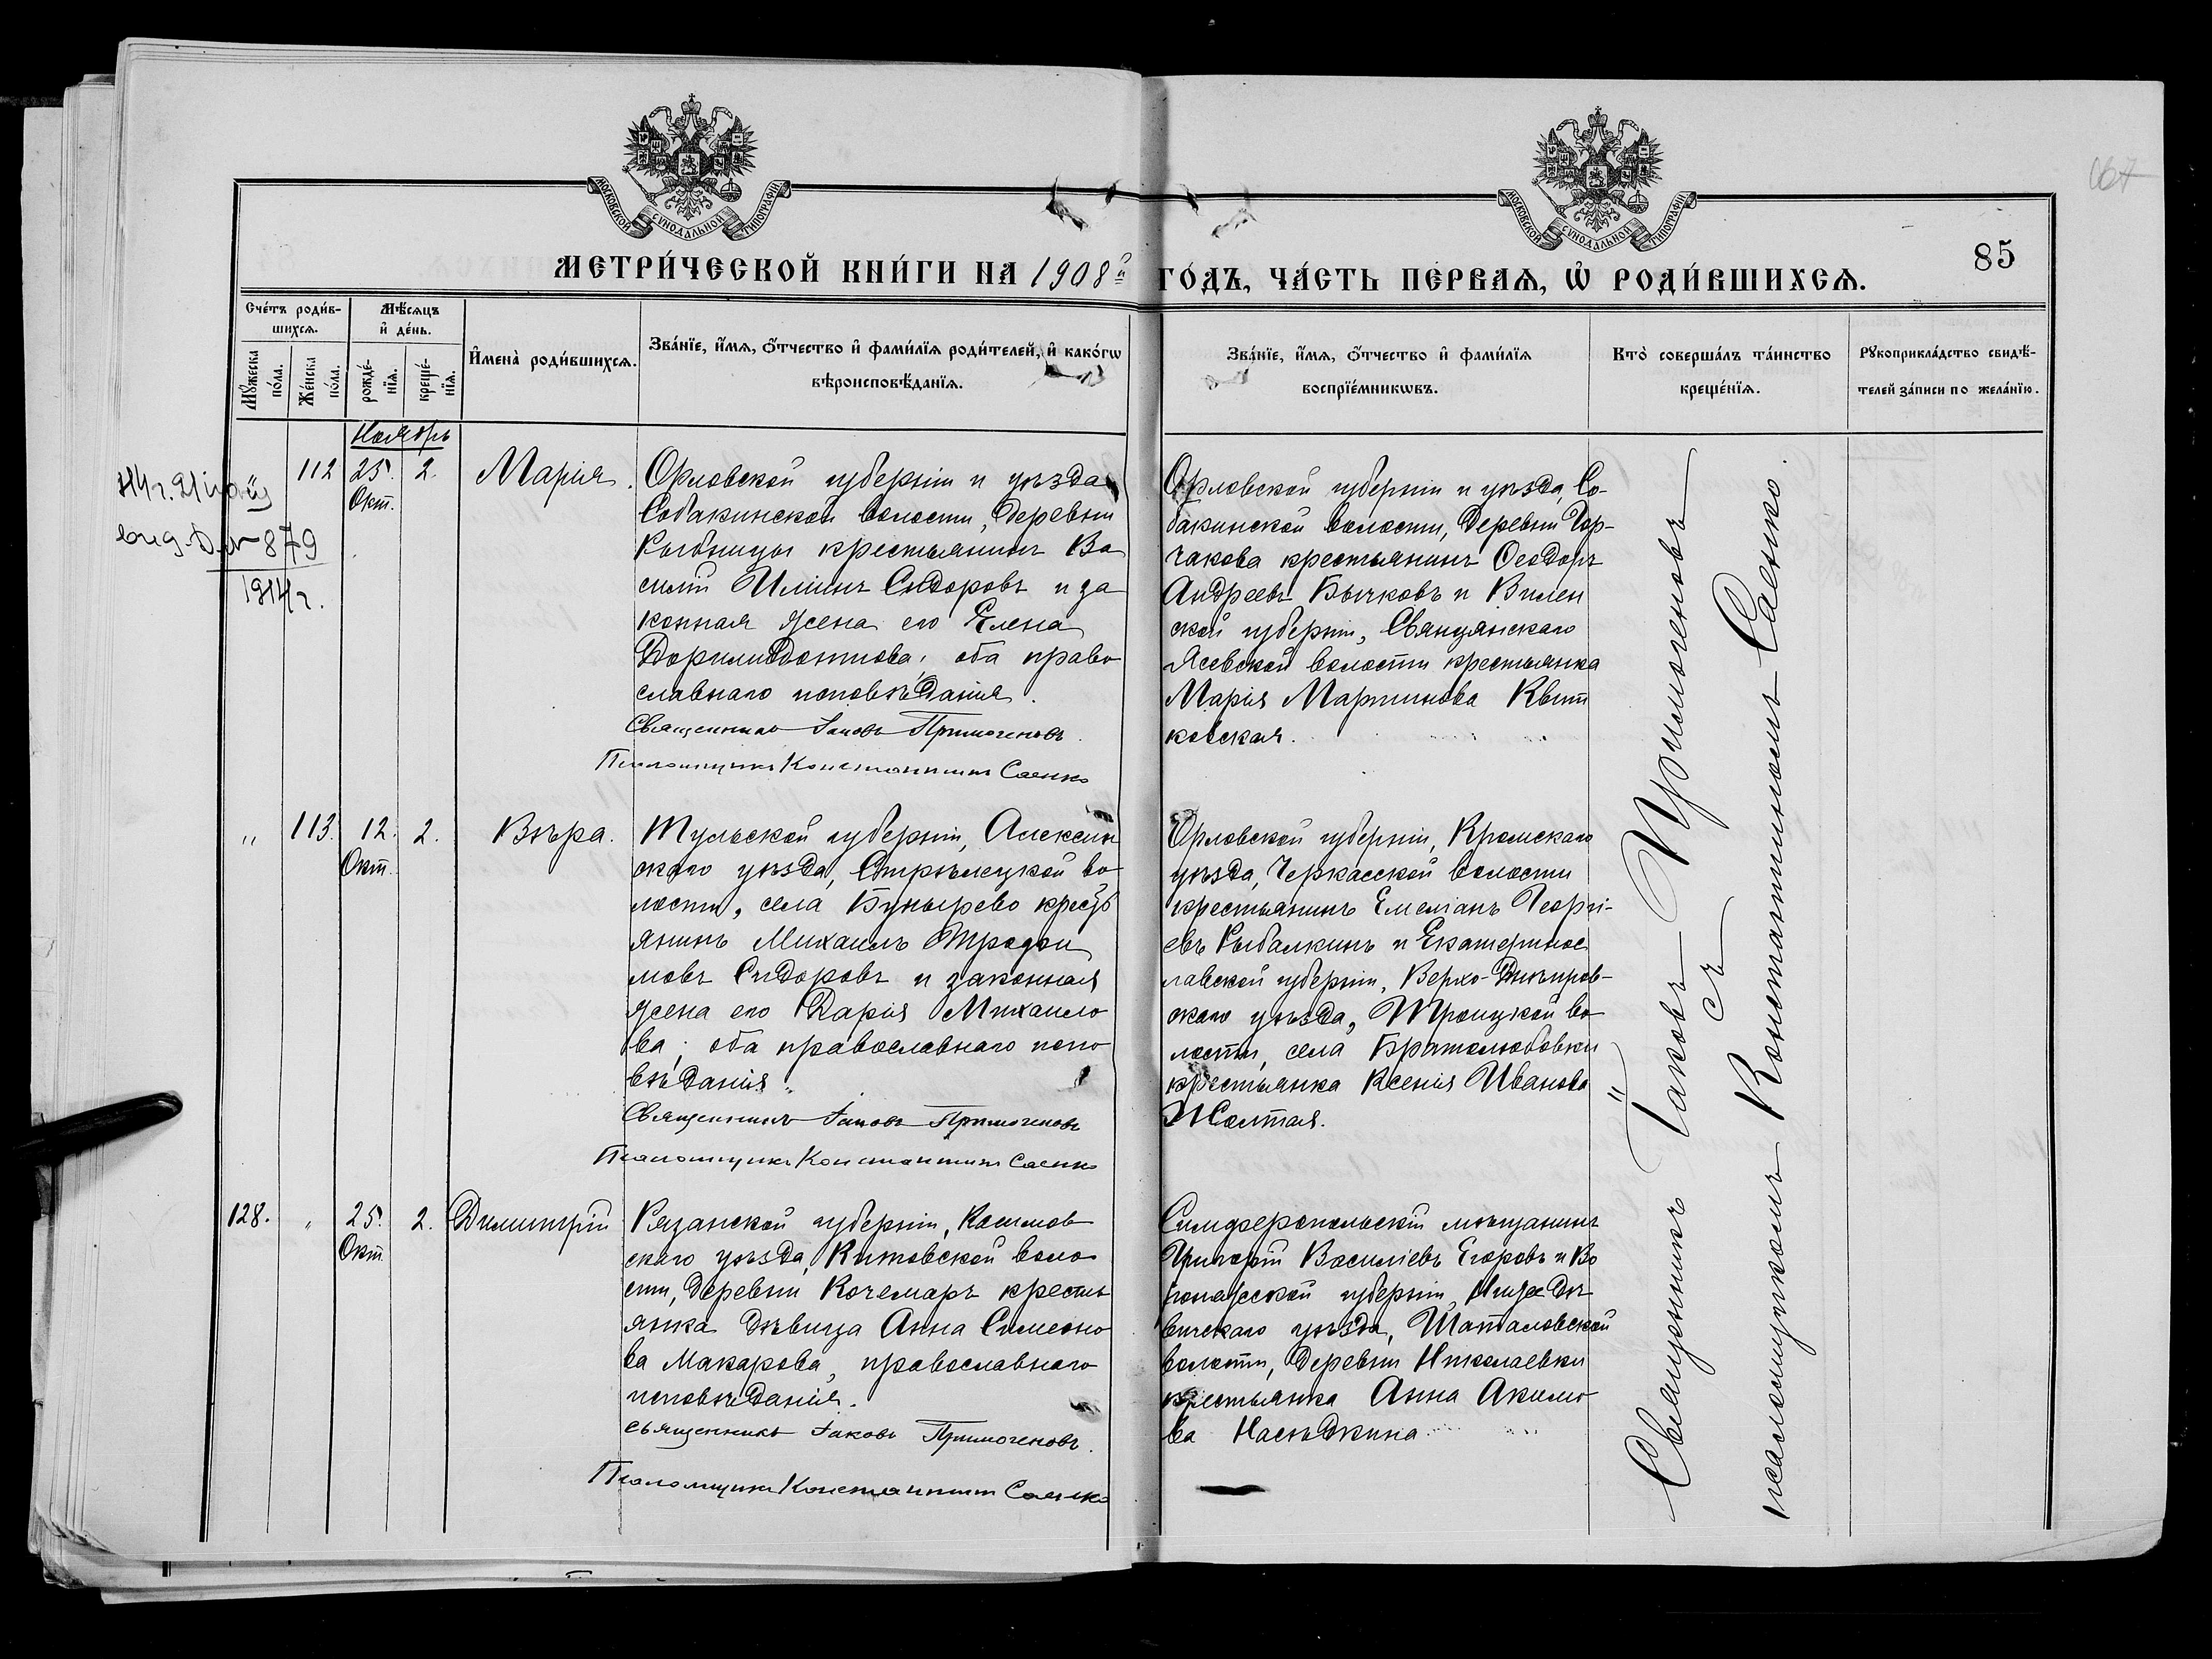 067
МОСКОВСКОЙ СѴНОДАЛЬНОЙ ТИПОГРАФІИ
МОСКОВСКОЙ СѴНОДАЛЬНОЙ ТИПОГРАФІИ
85
МЕТРИ́ЧЕСКОЙ КНИ́ГИ НА 1908й ГО́ДЪ, ЧА́СТЬ ПЕ́РВАѦ, Ѡ҆ РОДИ́ВШИХСѦ.
Сче́тъ роди́в-
шихсѧ.
Мꙋ́жеска
по́ла.
Же́нска
по́ла.
Мѣ́сѧцъ
и҆ де́нь.
рожде́-
нїѧ.
креще́-
нїѧ.
И҆мена̀ роди́вшихсѧ.
Зва́нїе, и҆́мѧ, ѻ҆́тчество и҆ фами́лїѧ роди́телей, и҆ како́гѡ
вѣроисповѣ́данїѧ.
Зва́нїе, и҆́мѧ, ѻ҆́тчество и҆ фами́лїѧ
воспрїе́мникѡвъ.
Кто̀ соверша́лъ та́инство
креще́нїѧ.
Рꙋкоприкла́дство свидѣ́-
телей за́писи по жела́нїю.
Ноябрь
112 25. 2. Марія.
Окт.
879
1914 г.
Орловской губерніи и уѣзда
Собакинской волости, деревни
Рыбницы крестьянинъ Ва
силій Илiинъ Сидоровъ и за
конная жена его Елена
Доримидонтова; оба право
славнаго исповѣданія.
Священникъ Іаковъ Примогеновъ.
Псаломщикъ Константинъ Саенко
Орловской губерніи и уѣзда, Со-
бакинской волости, деревни Гор-
чакова крестьянинъ Ѳеодоръ
Андреевъ Бычковъ и Вилен
ской губерніи, Свянцянскаго
волости крестьянка
Марія Мартинова Квят
ковская.
" 113. 12. 2. Вѣра.
Окт.
Тульской губерніи, Алексин
скаго уѣзда, Стрѣлецкой во
лости, села Бунырево крест
янинъ Михаилъ Трофи
мовъ Сидоровъ и законная
жена его Дарія Михаило
ва; оба православнаго испо
вѣданія.
Священникъ Іаковъ Примогеновъ
Псаломщикъ Константинъ Саенко
Орловской губерніи, Кромскаго
уѣзда, Черкасской волости
крестьянинъ Емеліанъ Георгі-
евъ Рыбалкинъ и Екатеринос
лавской губерніи, Верхо-Днѣпров-
скаго уѣзда, Троицкой во
лости, села Братолюбовки
крестьянка Ксенія Иванова
Жолтая.
128. " 25. 2. Димитрій
Окт.
Рязанской губерніи, Касимов
скаго уѣзда, Китовской воло
сти, деревни Кочемаръ кресть
янка дѣвица Анна Симеоно
ва Макарова, православнаго
исповѣданія.
священникъ Іаковъ Примогеновъ.
Псаломщикъ Константинъ Саенко
Симферопольскій мѣщанинъ
Григорій Василіевъ Егоровъ и Во
ронежской губерніи, Нижедѣ
вичскаго уѣзда, Шаталовской
волости, деревни Николаевки
крестьянка Анна Акимо
ва Насѣдкина
Священникъ Іаковъ Примогеновъ
съ
псаломщикомъ Константиномъ Саенко.